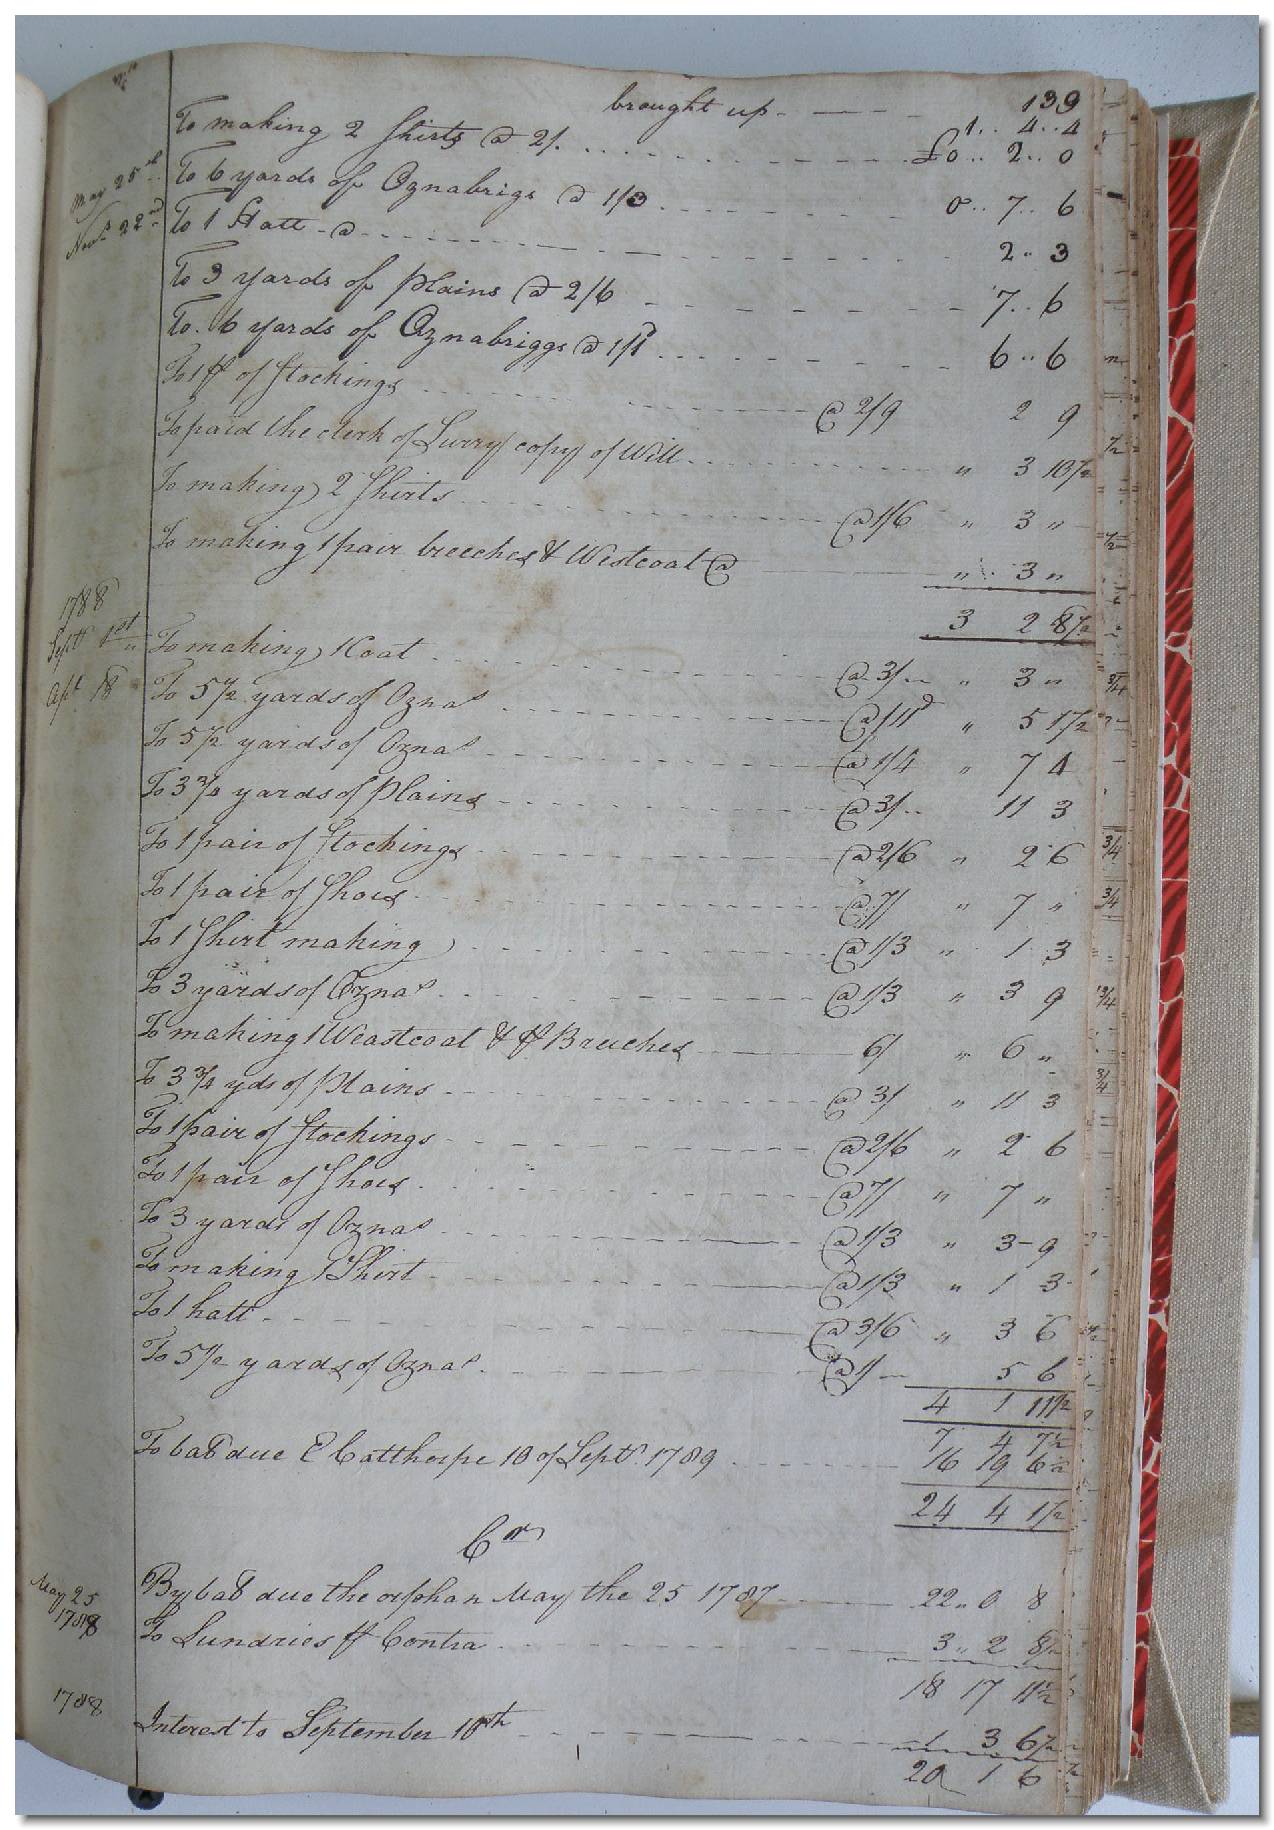 139
brought up 1.. 4.. 4
To making 2 Shirts @ 2/. £0.. 2.. 0
May 25th To 6 yards of Oznabrigs @ 1/3 0.. 7.. 6
Novr 22nd To 1 Hatt @ 2.. 3
To 3 yards of plains @ 2/6 7.. 6
To. 6 yards of Oznabriggs @ 1/1d 6.. 6
To 1 pr of Stockings @ 2/9 2 9
To paid the clerk of Surry copy of Will " 3 10½
To making 2 Shirts @ 1/6 " 3 "
To making 1 pair breeches & Westcoat @ " 3 "
3 2 8½
1788
Septr 1st To making 1 Coat @ 3/.. " 3 "
Apl 18 To 5½ yards of Oznas @ /11d " 5 1½
To 5½ yards of Oznas @ 1/4 " 7 4
To 3¾ yards of plains @ 3/.. 11 3
To 1 pair of Stockings @ 2/6 " 2 6
To 1 pair of Shoes @ 7/ " 7 "
To 1 Shirt making @ 1/3 " 1 3
To 3 yards of Oznas @ 1/3 " 3 9
To making 1 Weastcoat & pr Breeches 6/ " 6 "
To 3¾ yds of plains @ 3/ " 11 3
To 1 pair of Stockings @ 2/6 " 2 6
To 1 pair of Shoes @ 7/ " 7 "
To 3 yards of Oznas @ 1/3 " 3 - 9
To making 1 Shirt @ 1/3 " 1 3
To 1 hatt @ 3/6 " 3 6
To 5½ yards of Oznas @ 1/ 5 6
4 1 11½
7 4 7½
To bal due E Catthorpe 10 of Septr 1789 16 19 6
24 4 1½
Cr
May 25 By bal due the orphan May the 25 1787 22.. 0 8
To Sundries pr Contra 3.. 2 8½
18 17 11½
1788 Interest to September 10th 1 3 6½
20 1 6